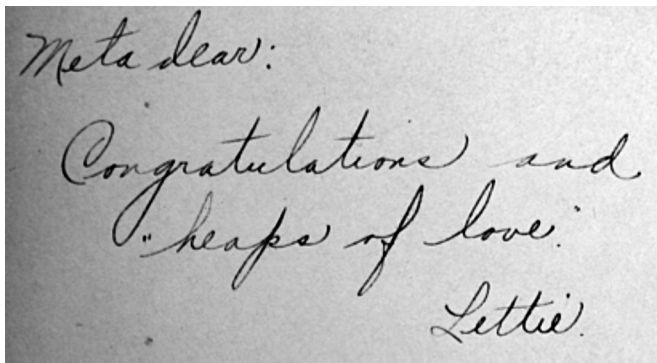 Meta dear:
Congratulations and
"heaps of love".
Lettie.